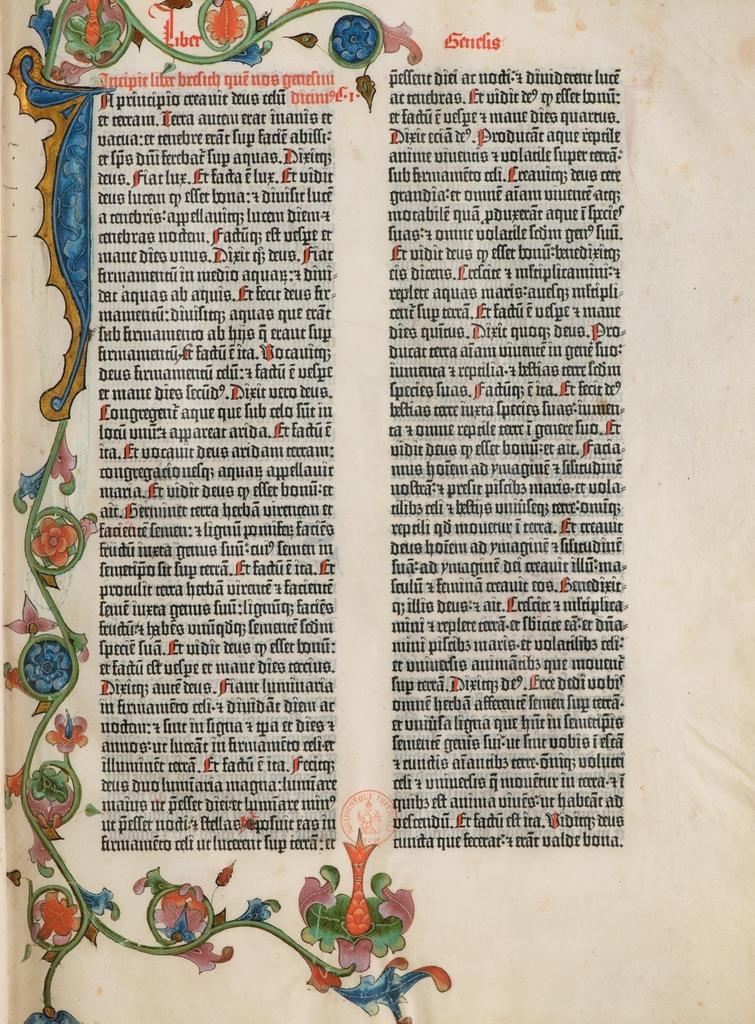 Liber Genesis
Incipit liber bresith quē nos genesim
In principio creavit deus celū dicim⁹ c. 1.
et terram. Terra autem erat inanis et
vacua: et tenebre erāt sup faciē abissi:
et sp̄s dñi ferebat̄ sup aquas. Dixitq̄
deus. Fiat lux. Et facta ē lux. Et vidit
deus lucem ꝙ esset bona: ⁊ divisit lucē
a tenebris: appellavitq̄ lucem diem ⁊
tenebras noctem. Factūq̄ est vespe et
mane dies vnus. Dixit q̄ deus. Fiat
firmamentū in medio aquaꝝ: ⁊ divi⸗
dat aquas ab aquis. Et fecit deus fir⸗
mamentū: divisitq̄ aquas que erāt
sub firmamento ab hijs q̄ erant sup
firmamentū: et factū ē ita. Vocavitq̄
deus firmamentū celū: ⁊ factū ē vespe
et mane dies secūd⁹. Dixit vero deus.
Congregent̄ aque que sub celo sūt in
locū vnū: ⁊ appareat arida. Et factū ē
ita. Et vocavit deus aridam terram:
congregacionesq̄ aquaꝝ appellavit
maria. Et vidit deus ꝙ esset bonū: et
ait. Germinet terra herbā virentem et
facientē semen: ⁊ lignū pomifeꝝ faciēs
fructū iuxta genus suū: cui⁹ semen in
semetipo sit sup terrā. Et factū ē ita. Et
protulit terra herbā virentē ⁊ facientē
semē iuxta genus suū: lignūq̄ faciēs
fructū ⁊ habēs vnūqdq̄ sementē scdm
speciē suā. Et vidit deus ꝙ esset bonū:
et factū est vespe et mane dies tercius.
Dixitq̄ autē deus. Fiant luminaria
in firmamēto celi · ⁊ dividāt diem ac
noctem: ⁊ sint in signa ⁊ tp̄a et dies ⁊
annos: ut luceāt in firmamēto celi et
illuminēt terrā. Et factū ē ita. Fecitq̄
deus duo luminaria magna: lumiare
maius ut p̄esset diei: et lumiare min⁹
ut p̄esset nocti: ⁊ stellas · ⁊ posuit eas in
firmamēto celi ut lucerent sup terrā: et
p̄essent diei ac nocti: ⁊ dividerent lucē
ac tenebras. Et vidit de⁹ ꝙ esset bonū:
et factū ē vespe ⁊ mane dies quartus.
Dixit eciā de⁹. Producāt aque reptile
anime viventis ⁊ volatile super terrā:
sub firmamēto celi. Creavitq̄ deus cete
grandia: et omnē aīam viventē atq̄
motabilē quā pduxerāt aque ī species
suas: ⁊ omne volatile scdm gen⁹ suū.
Et vidit deus ꝙ esset bonū: benedixitq̄
eis dicens. Crescite ⁊ mltiplicamini: ⁊
replete aquas maris: avesq̄ mltipli⸗
cent̄ sup terrā. Et factū ē vespe ⁊ mane
dies quītus. Dixit quoq̄ deus. Pro⸗
ducat terra aīam viventē in genē suo:
iumenta ⁊ reptilia · ⁊ bestias terre scdm
species suas. Factūq̄ ē ita. Et fecit de⁹
bestias terre iuxta species suas: iumen⸗
ta ⁊ omne reptile terre ī genere suo. Et
vidit deus ꝙ esset bonū: et ait. Facia⸗
mus hoīem ad ymaginē ⁊ silitudinē
nostrā: ⁊ presit piscibꝫ maris · et vola⸗
tilibꝫ celi ⁊ bestijs vniūseq̄ terre: omīq̄
reptili qd movetur ī terra. Et creavit
deus hoīem ad ymaginē ⁊ silitudinē
suā: ad ymaginē dei creavit illū: ma⸗
sculū ⁊ feminā creavit eos. Benedixit⸗
q̄ illis deus: ⁊ ait. Crescite ⁊ mltiplica⸗
mini ⁊ replete terrā · et sbicite eā: et dn̄a⸗
mini piscibꝫ maris · et volatilibꝫ celi:
et vniversis animātibꝫ que movent̄
sup terrā. Dixitq̄ de⁹. Ecce dedi vobis
omnē herbā afferentē semen sup terrā ·
et vniūsa ligna que hn̄t in semetipis
sementē genīs sui: ut sint vobis ī escā
⁊ cunctis aīantibꝫ terre · omīq̄ volucri
celi ⁊ vniversis q̄ moventur in terra · ⁊ ī
quibꝫ est anima vivēs: ut habeāt ad
vescendū. Et factū est ita. Viditq̄ deus
cuncta que fecerat: ⁊ erāt valde bona.